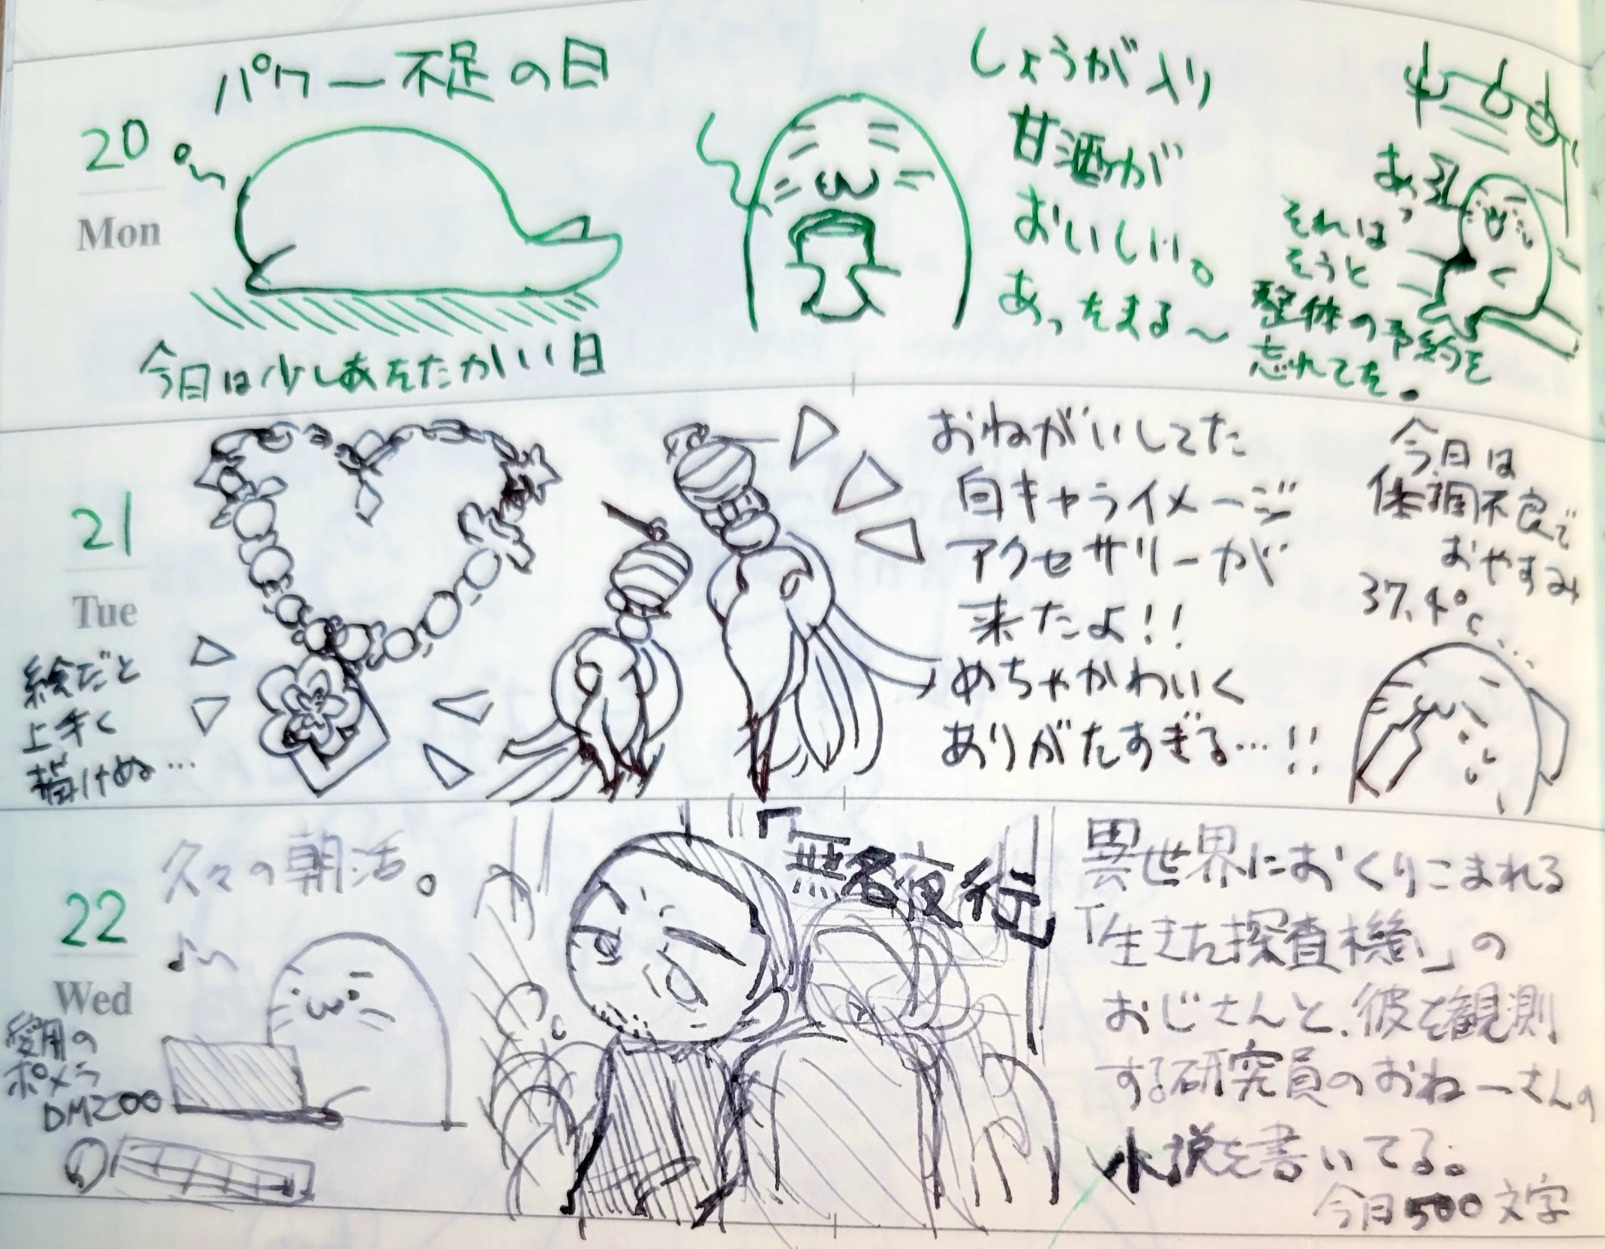 20
Mon
パワー不足の日
今日は少しあたたかいい日
しょうが入り
甘酒が
おいしい。
あったまる〜
あっ
それは
そうと
整体の予約を
忘れてた。
21
Tue
絵だと
上手く
描けぬ…
おねがいしてた
自キャライメージ
アクセサリーが
来たよ!!
めちゃかわいく
ありがたすぎる…!!
今日は
体調不良で
おやすみ
37.4℃…
22
Wed
久々の朝活。
愛用の
ポメラ
DM200
「無名夜行」
異世界におくりこまれる
「生きた探査機」の
おじさんと、彼を観測
する研究員のおねーさんの
小説を書いてる。
今日500文字